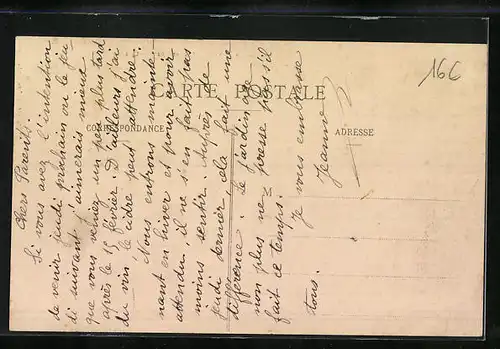 CARTE POSTALE
CORRESPONDANCE
ADRESSE
16C
Chers Parents
Si vous avez l'intention
de venir jeudi prochain ou le jeu-
di suivant j'aimerais mieux
que vous veniez un peu plus tard
après le 15 février. D'ailleurs j'ai
du vin, le cidre peut attendre.
Nous entrons mainte-
nant en hiver et pour avoir
attendu, il ne s'en fait pas
moins sentir. Auprès de
jeudi dernier cela fait une
différence. Le jardin de
non plus ne presse pas s'il
fait ce temps.
Je vous embrasse
tous.
Jeanne